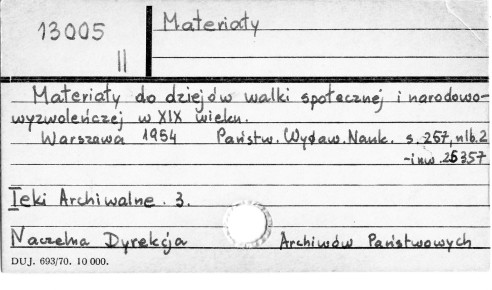 13005
II
Materiały
Materiały do dziejów walki społecznej i narodowo-
wyzwoleńczej w XIX wieku.
Warszawa 1954 Państw. Wydaw. Nauk. s. 257, nlb. 2
- inw. 25357
Teki Archiwalne. 3.
Naczelna Dyrekcja Archiwów Państwowych
DUJ. 693/70. 10 000.